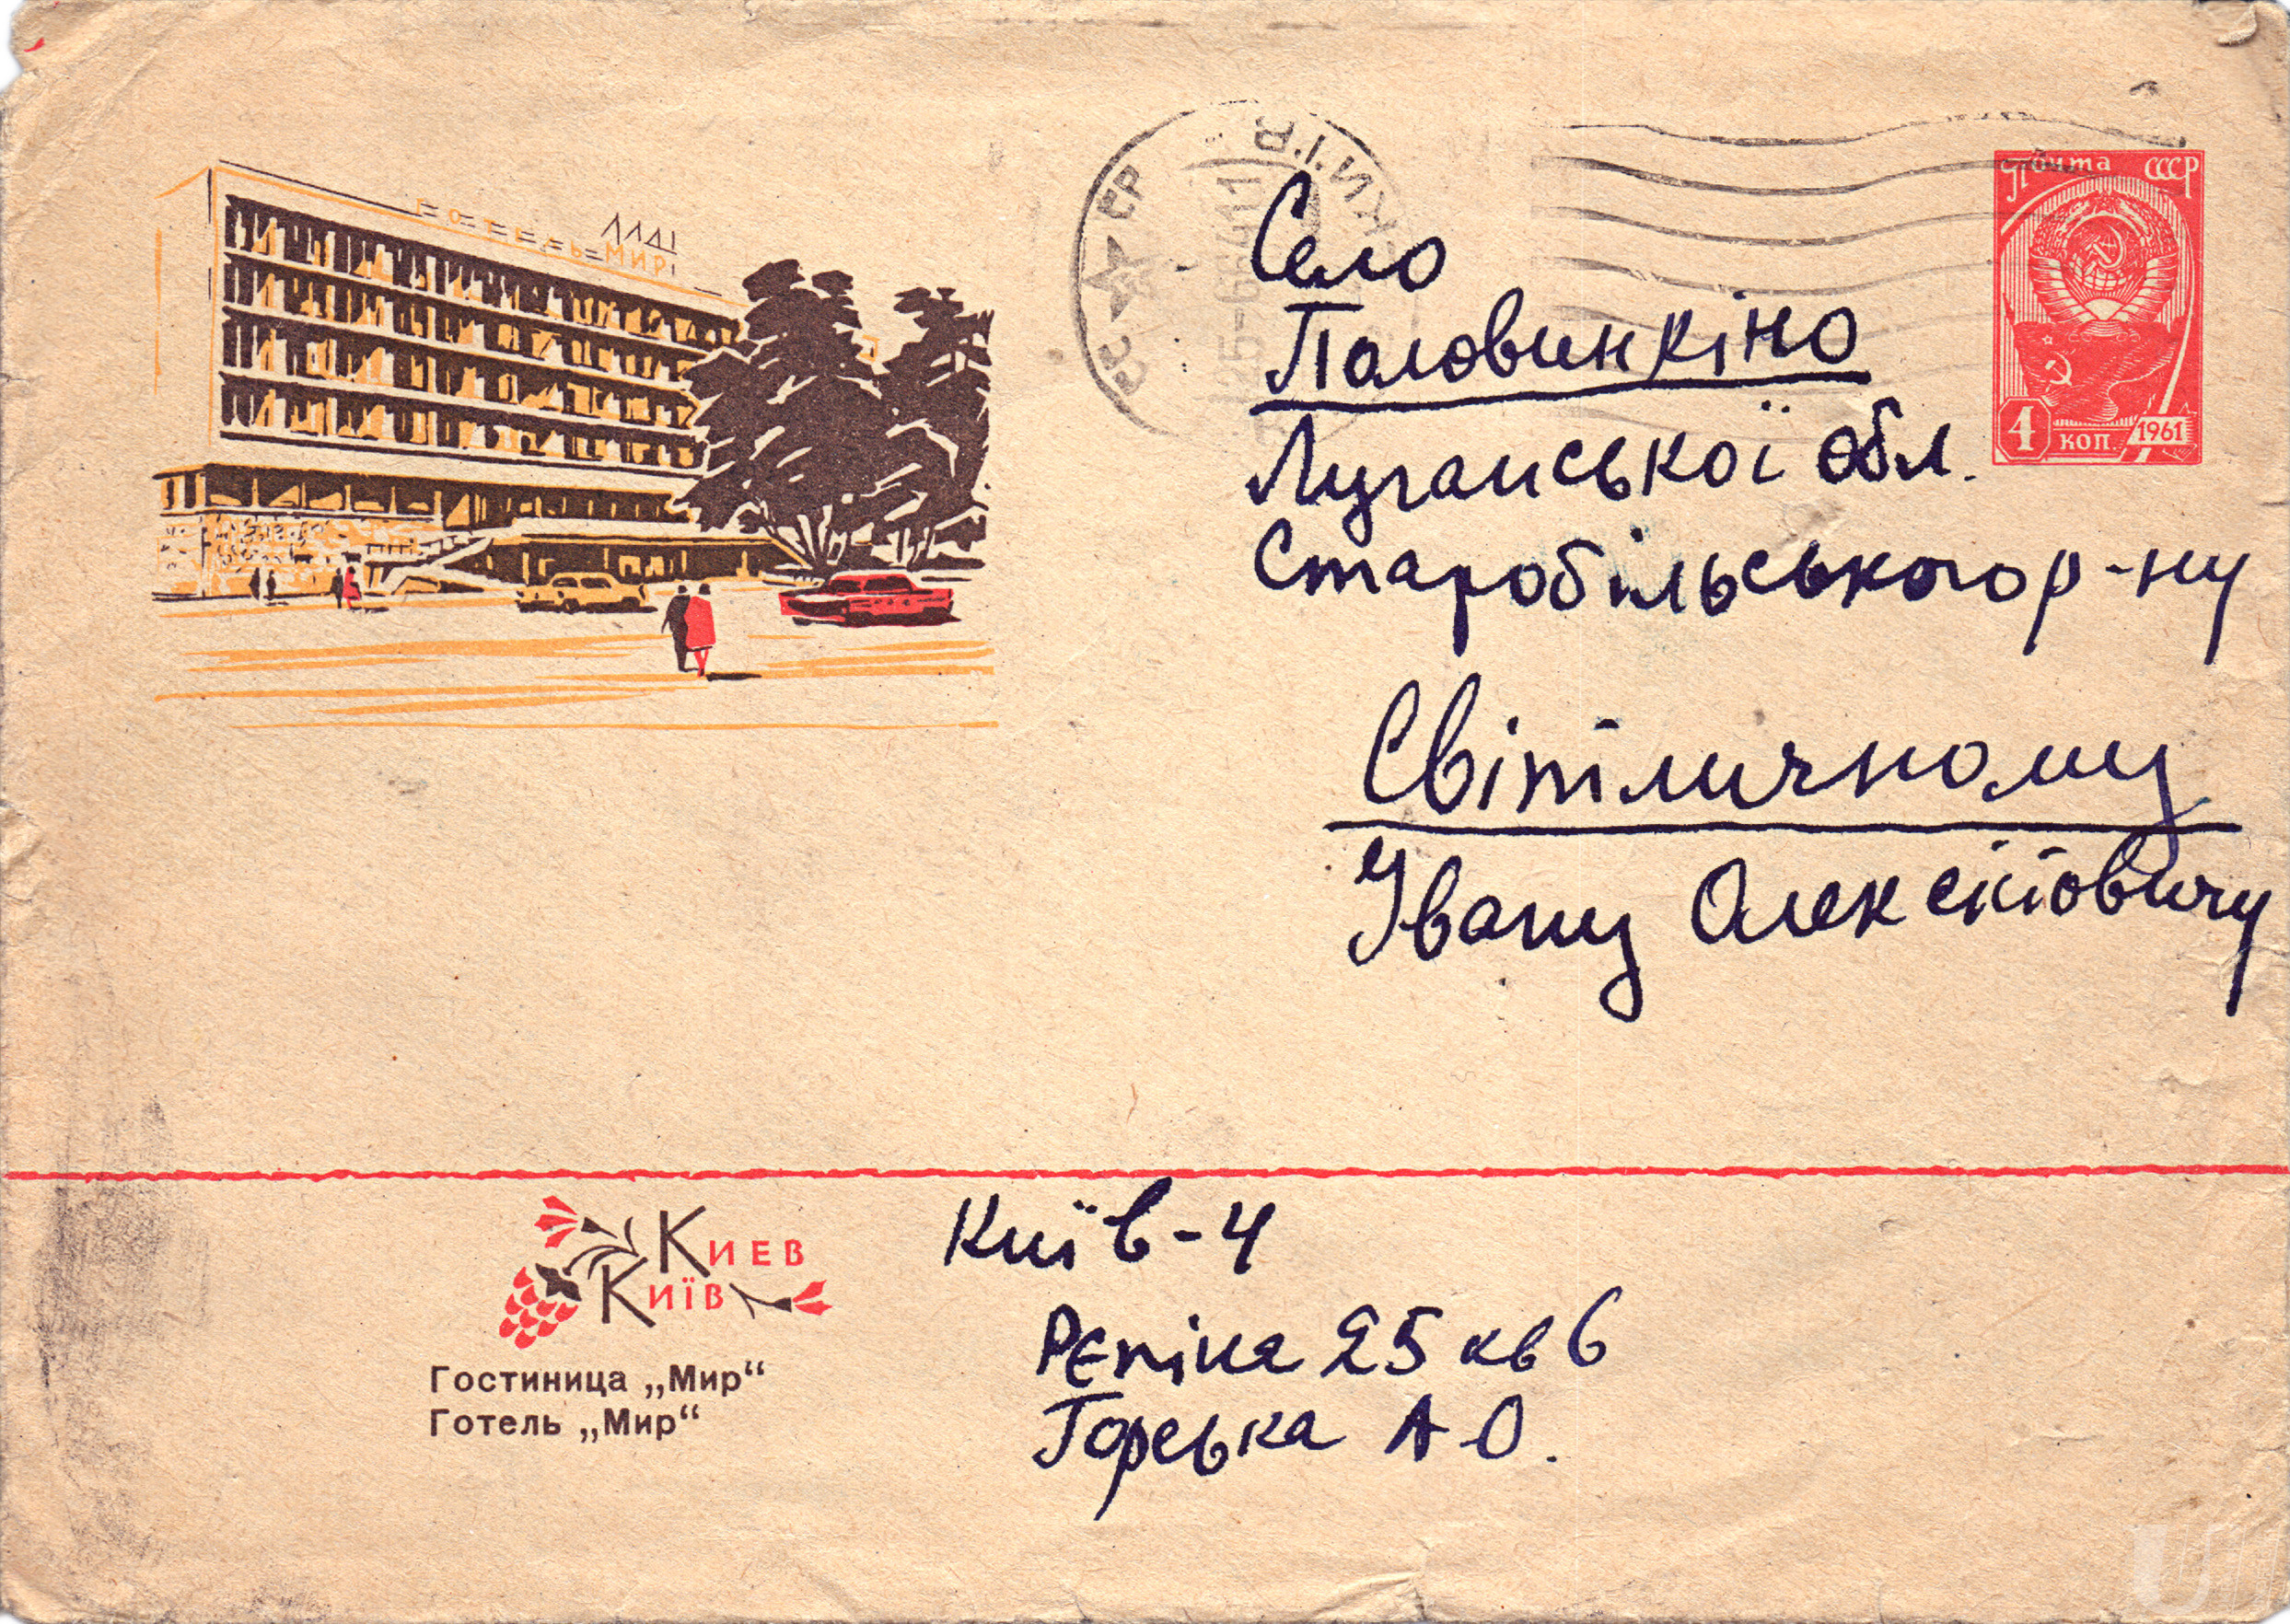 ГОТЕЛЬ МИР
Почта СССР
4 коп. 1961
Село
Половинкіно
Луганської обл.
Старобільського р-ну
Світличному
Івану Олексійовичу
Киев
Київ
Гостиница „Мир“
Готель „Мир“
Київ-4
Рєпіна 25 кв 6
Горська А О.